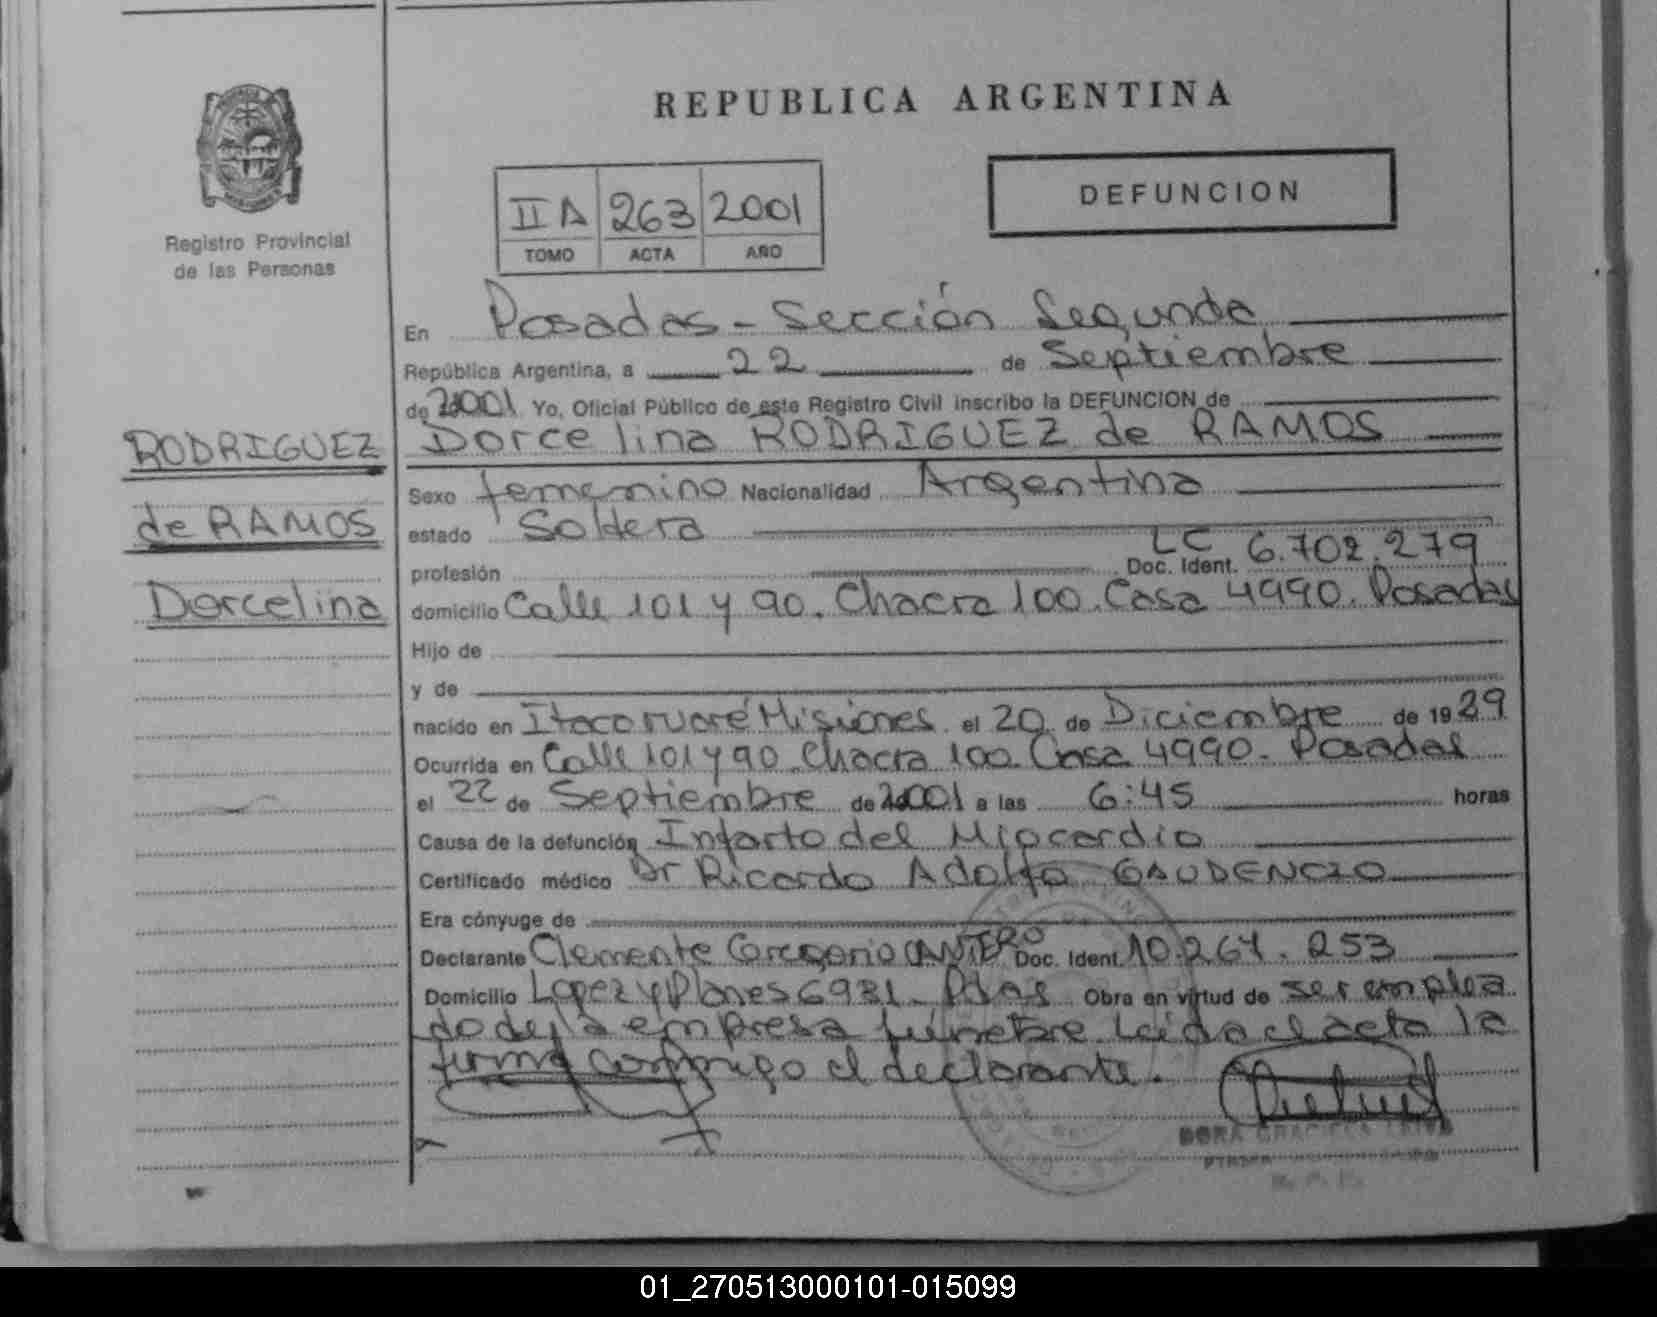 REPUBLICA ARGENTINA
DEFUNCION
IIA 263 2001
TOMO ACTA AÑO
Registro Provincial
de las Personas
RODRIGUEZ
de RAMOS
Dorcelina
En Posadas - Sección Segunda
República Argentina, a 22 de Septiembre
de 2001 Yo, Oficial Público de este Registro Civil inscribo la DEFUNCION de
Dorcelina RODRIGUEZ de RAMOS
Sexo femenino Nacionalidad Argentina
estado Soldera
profesión Doc. Ident. LC 6.702.279
domicilio Calle 101 y 90. Chacra 100. Casa 4990. Posadas
Hijo de
y de
nacido en Itacoruaré Misiones el 20 de Diciembre de 1929
Ocurrida en Calle 101 y 90. Chacra 100. Casa 4990. Posadas
el 22 de Septiembre de 2001 a las 6:45 horas
Causa de la defunción Infarto del Miocardio
Certificado médico Dr Ricardo Adolfo GAUDENCIO
Era cónyuge de
Declarante Clemente Gregorio Doc. Ident. 10.264.253
Domicilio Lopez y Planes 6931 - Pdas Obra en virtud de ser emplea
do de la empresa fúnebre. Leida el acta la
firma conmigo el declarante.
DORA GRACIELA
01_270513000101-015099